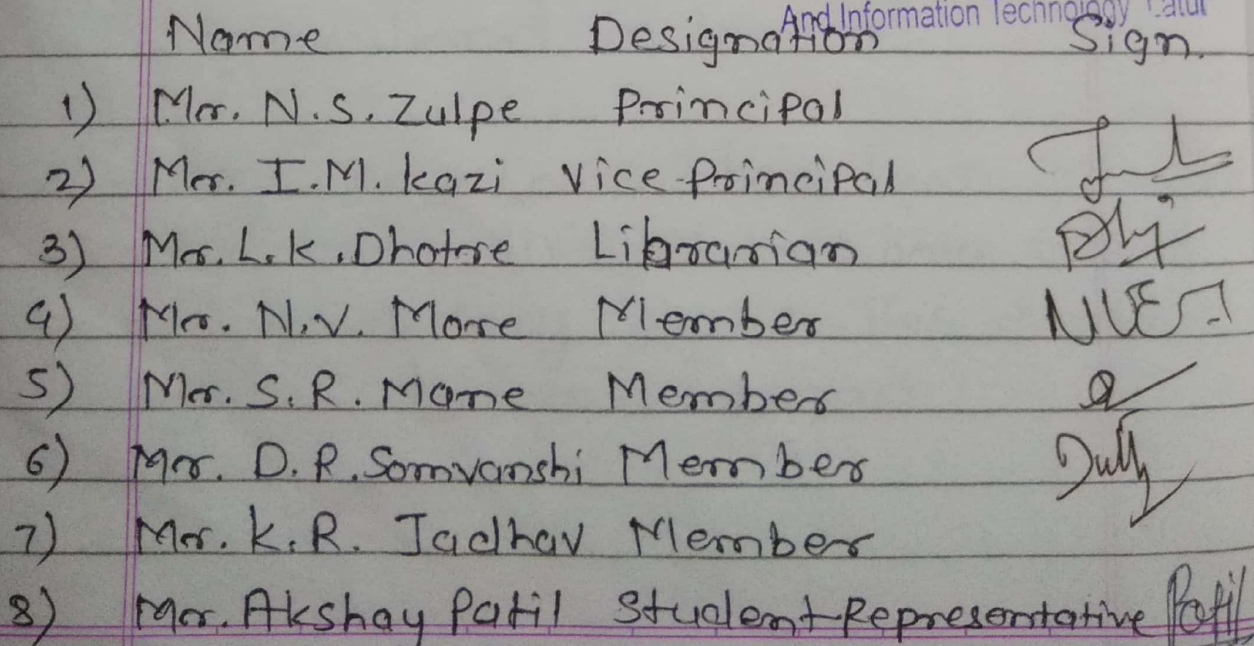 And Information Technology Latur
Name Designation Sign.
1) Mr. N.S. Zulpe Principal
2) Mr. I.M. Kazi Vice-Principal
3) Mr. L.K. Dhotre Librarian
4) Mr. N.V. More Member
5) Mr. S.R. Mane Member
6) Mr. D.R. Somvanshi Member
7) Mr. K.R. Jadhav Member
8) Mr. Akshay Patil Student-Representative Patil